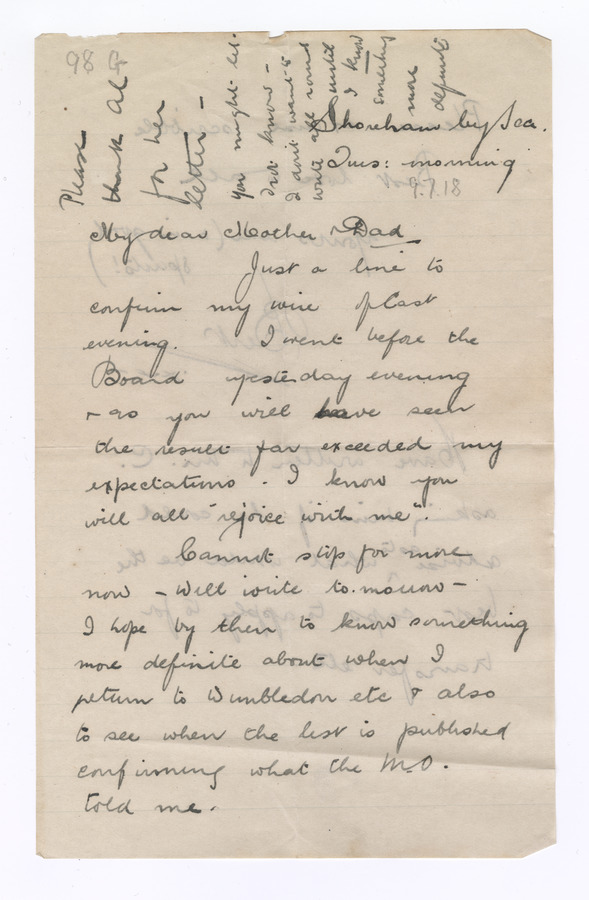 98
Shoreham by Sea.
Tues: morning
9.7.18
My dear Mother & Dad
Just a line to
confirm my wire of last
evening. I went before the
Board yesterday evening
& as you will have seen
the result far exceeded my
expectations. I know you
will all "rejoice with me".
Cannot stop for more
now - will write to-morrow -
I hope by then to know something
more definite about when I
return to Wimbledon etc & also
to see when the list is published
confirming what the M.O.
told me.
Please
thank Al
for her
letter -
You might let
know -
I don't want to
write all round
until
I know
something
more
definite